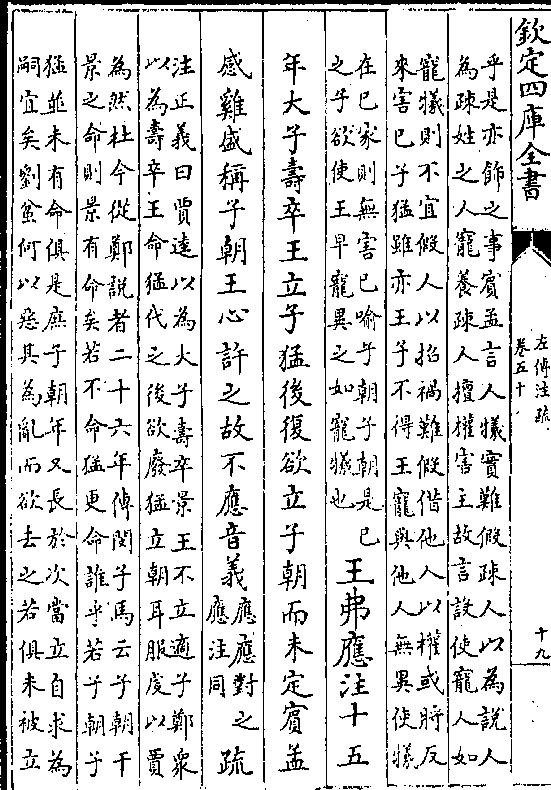 欽定四庫全書
左傳注疏
卷五十
十九
乎是亦飾之事賓孟言人犧實難假疎人以為說人
為疎姓之人寵養疎人擅權害主故言設使寵人如
寵犧則不宜假人以招禍難假借他人以權或將反
來害已子猛雖亦王子不得王寵與他人無異使犧
在已家則無害已喻子朝子朝是已
之子欲使王早寵異之如寵犧也
王弗應注十五
年大子壽卒王立子猛後復欲立子朝而未定賓孟
感雞盛稱子朝王心許之故不應音義
應應對之
應注同
疏
注正義曰賈逵以為大子壽卒景王不立適子鄭衆
以為壽卒王命猛代之後欲廢猛立朝耳服虔以賈
為然杜今從鄭說者二十六年傳閔子馬云子朝干
景之命則景有命矣若不命猛更命誰乎若子朝子
猛並未有命俱是庶子朝年又長於次當立自求為
嗣宜矣劉蚠何以惡其為亂而欲去之若俱未被立